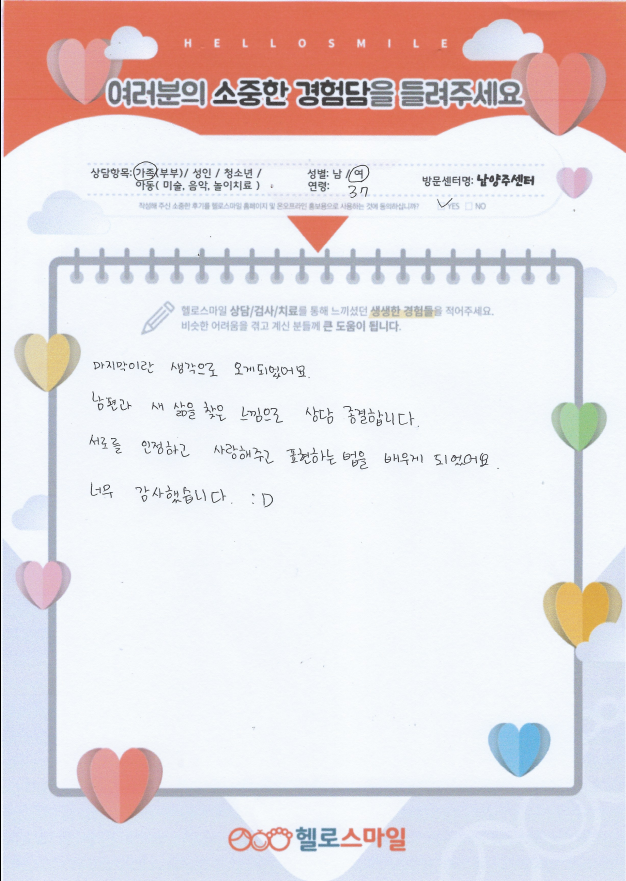 HELLOSMILE
여러분의 소중한 경험담을 들려주세요
상담항목: 가족(부부) / 성인 / 청소년 /
아동( 미술, 음악, 놀이치료 )
성별: 남 / 여
연령: 37
방문센터명: 남양주센터
작성해 주신 소중한 후기를 헬로스마일 홈페이지 및 온오프라인 홍보용으로 사용하는 것에 동의하십니까? ✓YES □ NO
헬로스마일 상담/검사/치료를 통해 느끼셨던 생생한 경험들을 적어주세요.
비슷한 어려움을 겪고 계신 분들께 큰 도움이 됩니다.
마지막이란 생각으로 오게되었어요.
남편과 새 삶을 찾은 느낌으로 상담 종결합니다.
서로를 인정하고 사랑해주고 표현하는 법을 배우게 되었어요.
너무 감사했습니다. :D
헬로스마일